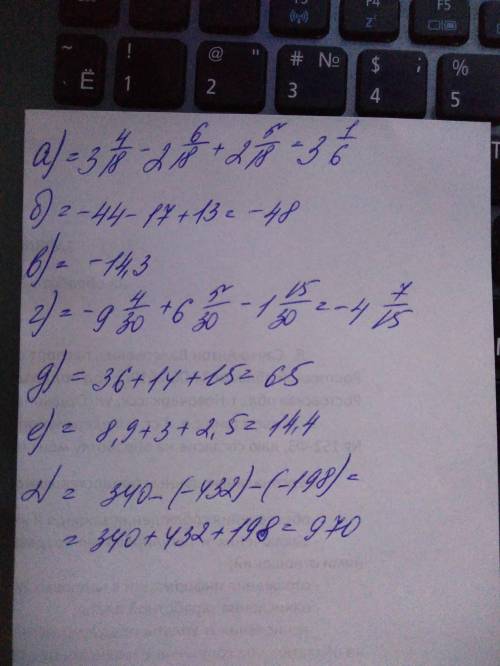 ~ Ё
! 1
@ " 2
# № 3
$ ; 4
% 5
F4
F5
а) = 3 4/18 - 2 6/18 + 2 5/18 = 3 1/6
б) = -44 - 17 + 13 = -48
в) = -14,3
г) = -9 4/30 + 6 5/30 - 1 15/30 = -4 7/15
д) = 36 + 14 + 15 = 65
е) = 8,9 + 3 + 2,5 = 14,4
2) = 340 - (-432) - (-198) =
= 340 + 432 + 198 = 970